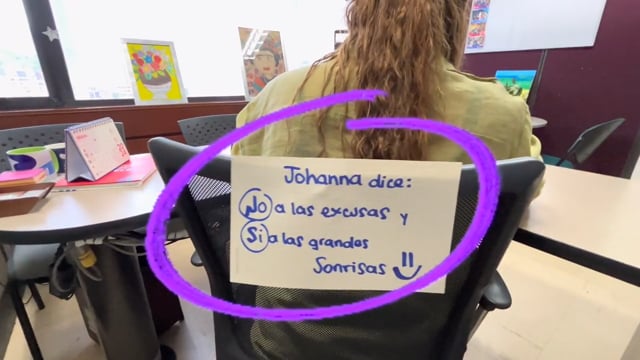 Johanna dice:
No a las excusas y
Si a las grandes
Sonrisas